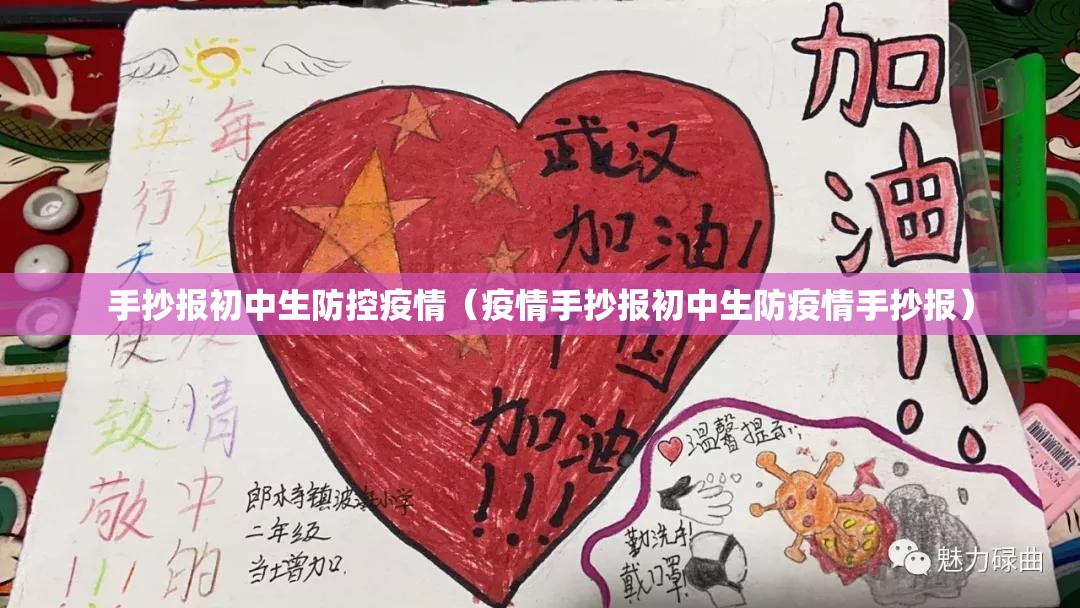 每一位疫情中的
逆行天使
致敬!!!
武汉
加油!
中国
加油
!!!
加油!!!
手抄报初中生防控疫情（疫情手抄报初中生防疫情手抄报）
温馨提示:
勤洗手
戴口罩
郎木寺镇波海小学
二年级
魅力碌曲